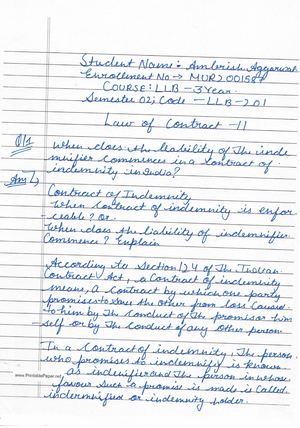 Student Name:- Ambrish Aggarwal
Enrollment No → MUR2001587
COURSE: LLB -3 Year.
Semester 02; Code - LLB-201
Law of Contract -II
Q/1
when does the liability of The inde
mnifier commences in a contract of
indemnity in India?
Ans 1)
Contract of Indemnity
When contract of indemnity is enfor
ceable? Or.
When does the liability of indemnifier
Commence? Explain
According to Section 124 of The Indian
Contract Act, a Contract of indemnity
means, a contract by which one party
promises to save the other from loss Caused
to him by The Conduct of The promisor him
-self or by The Conduct of any other person
In a contract of indemnity, The person
who promises to indemnify is known
as indemnifier and The person in whose
favour such a promise is made is Called
indemnified or indemnity holder.
www.PrintablePaper.net